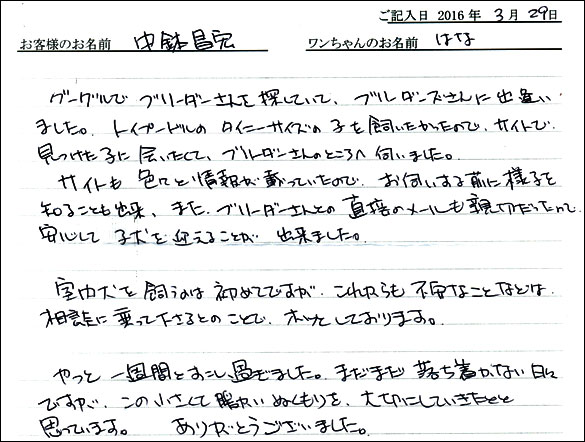 ご記入日 2016 年 3 月 29日
お客様のお名前 中鉢昌宏 ワンちゃんのお名前 はな
グーグルで ブリーダーさんを探していて、ブルダンズさんに出逢い
ました。トイプードルの タイニーサイズの子を飼いたかったので、サイトで
見つけた子に会いたくて、ブリーダーさんのところへ伺いました。
サイトも 色々と情報が載っていたので、お伺いする前に様子を
知ることも出来、また、ブリーダーさんとの直接のメールも親切だったので
安心して子犬を迎えることが 出来ました。
室内犬を飼うのは初めてですが、これからも不安なことなどは
相談に乗って下さるとのことで、ホッとしております。
やっと一週間とすこし過ぎました。まだまだ落ち着かない日々
ですが、この小さくて暖かいぬくもりを、大切にしていきたいと
思っています。 ありがとうございました。